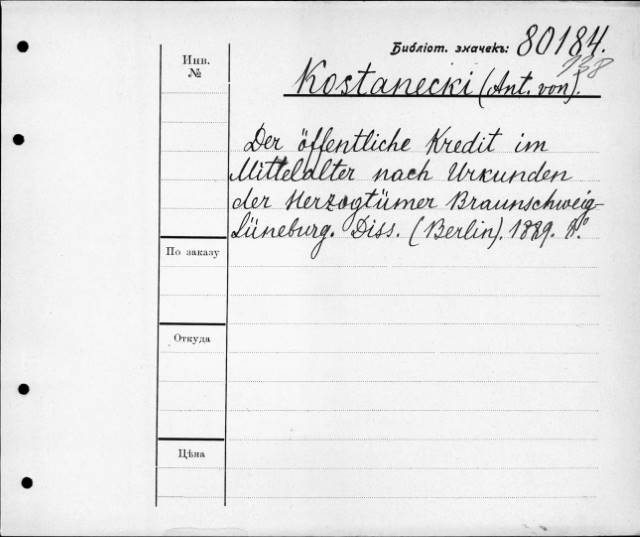 Библіот. значекъ: 80184.
138
Инв.
№
Kostanecki (Ant. von).
Der öffentliche Kredit im
Mittelalter nach Urkunden
der Herzogtümer Braunschweig-
Lüneburg. Diss. (Berlin). 1889. 8.°
По заказу
Откуда
Цѣна